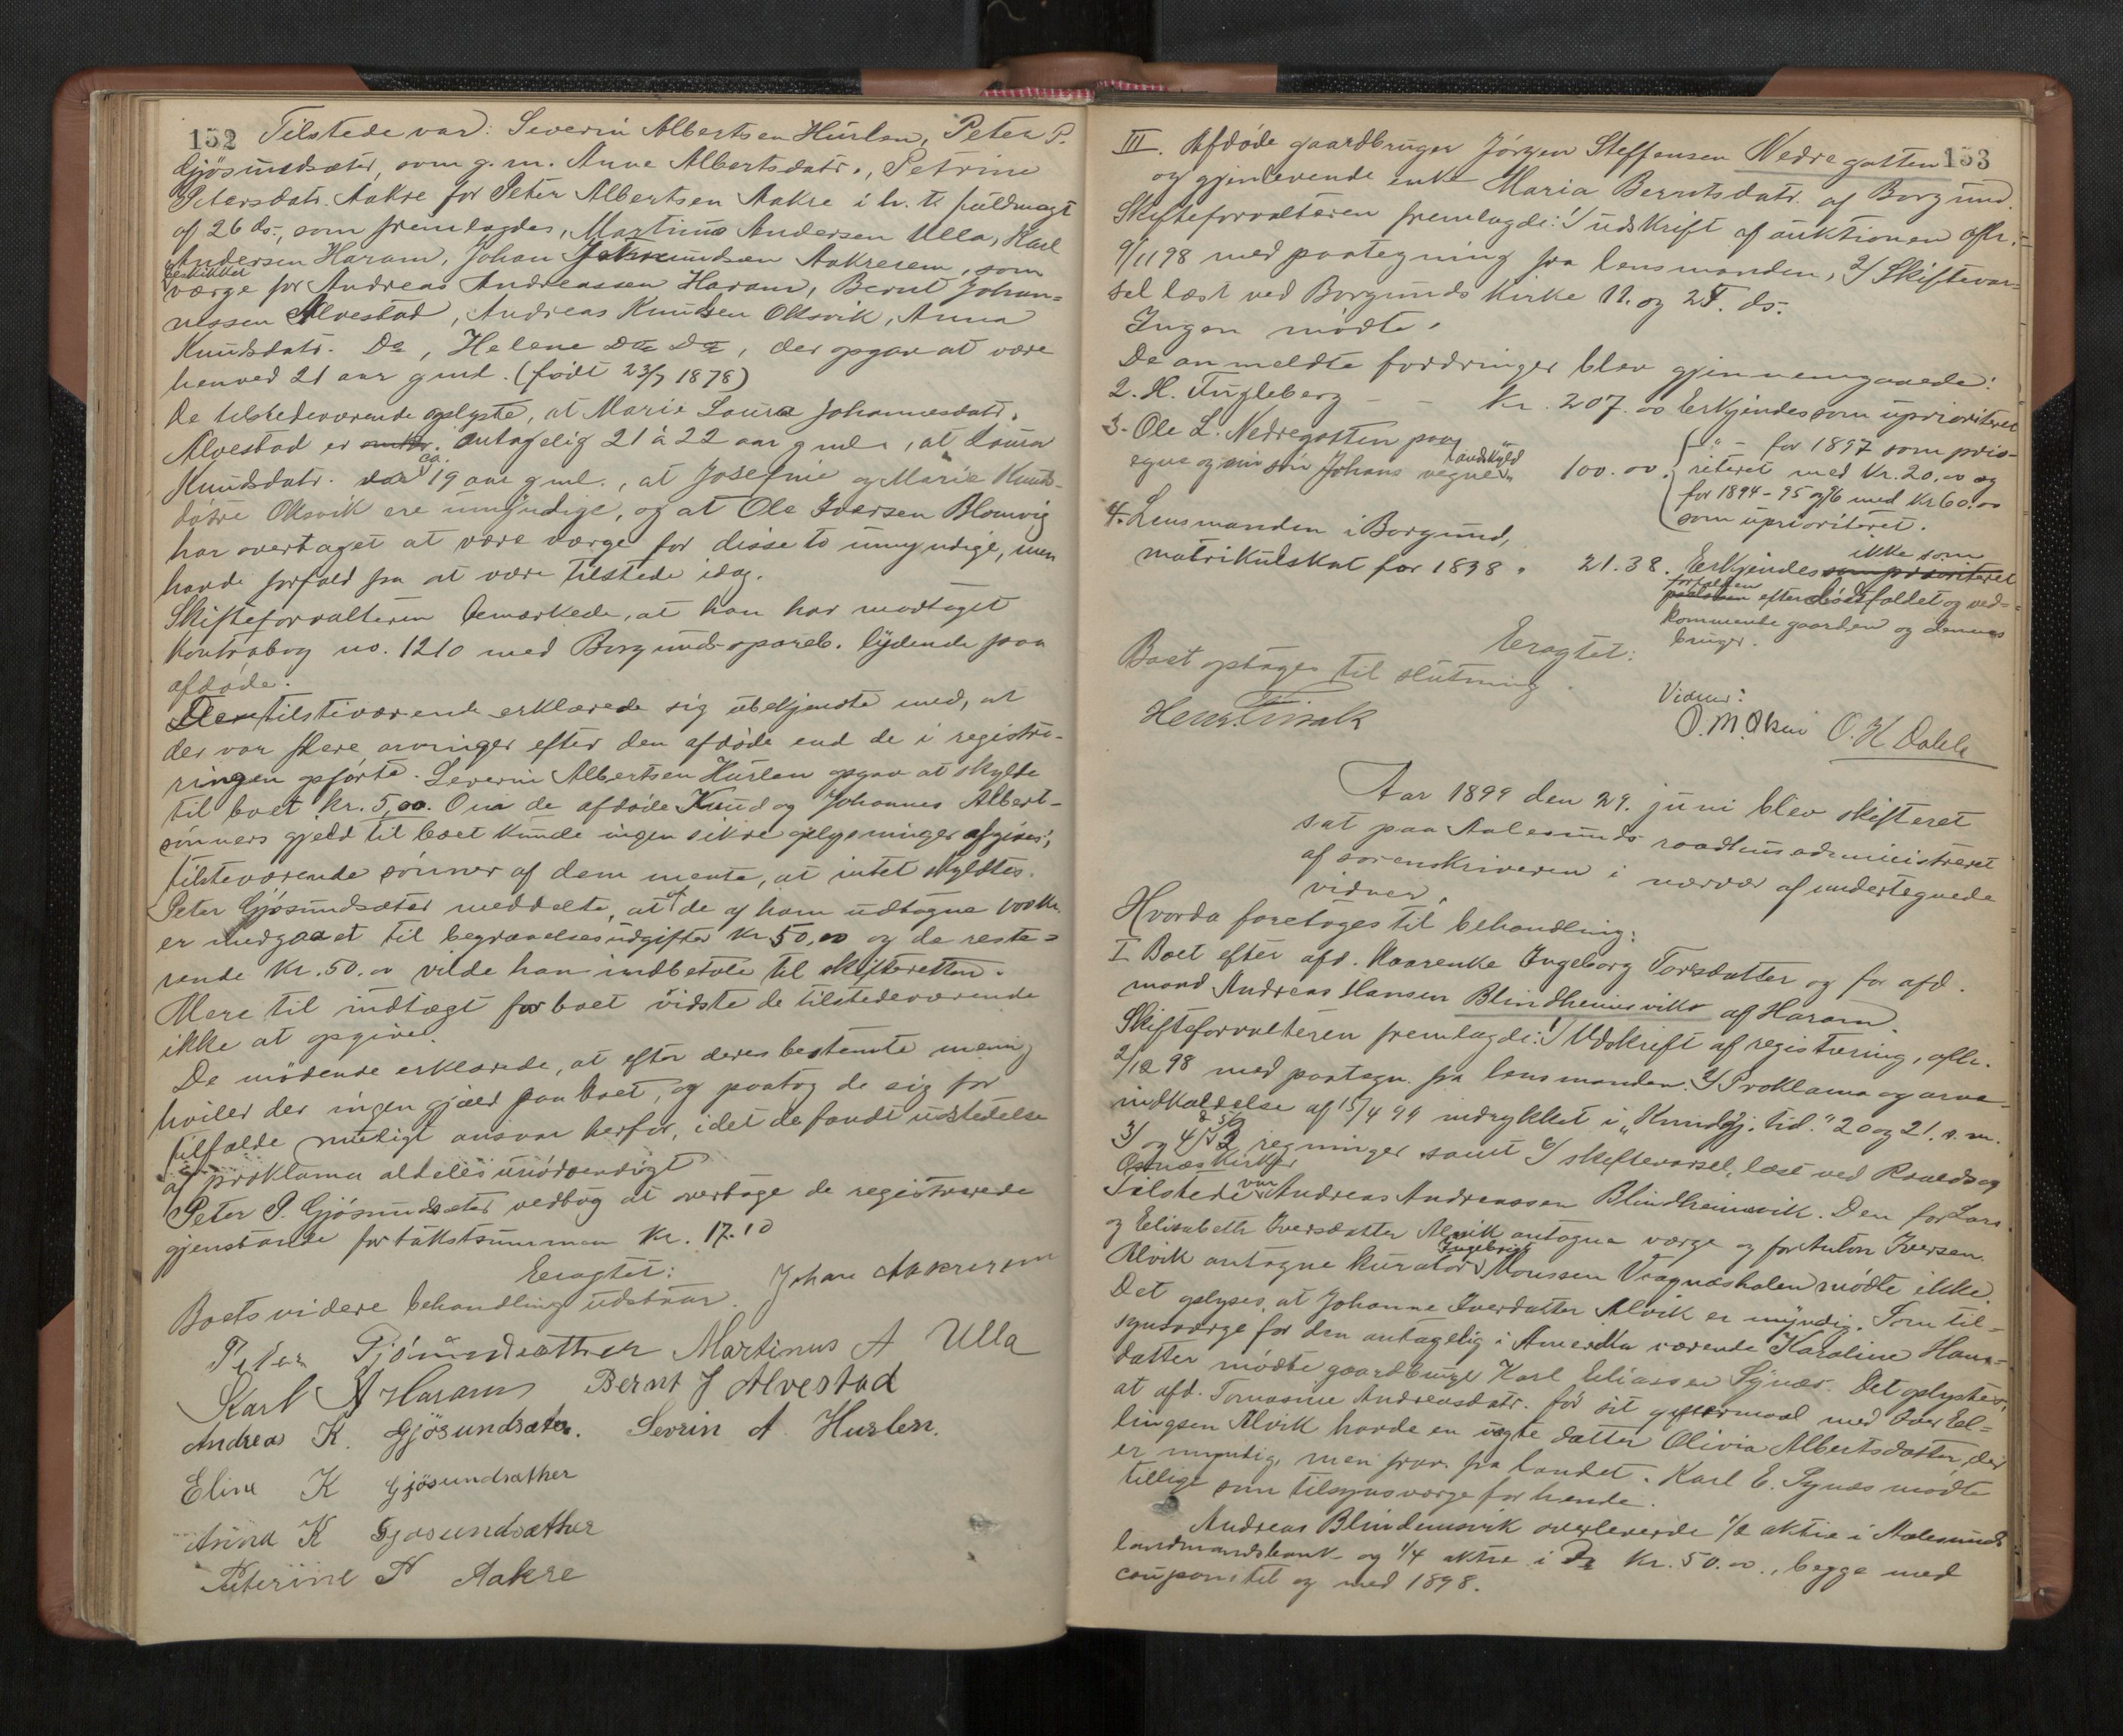 152 Tilstede var: Severin Albertsen Hurlen, Peter P.
Gjøsundsæter, som g. m. Anne Albertsdatr., Petrine
Petersdatr. Aakre for Peter Albertsen Aakre i h. t. fuldmagt
af 26 ds., som fremlagdes, Martinus Andersen Ulla, Karl
Andersen Haram, Johan Aakresem, som
beskikket
værge for Andreas Andreassen Haram, Bernt Johan=
nessen Alvestad, Andreas Knudsen Oksvik, Anna
Knudsdatr. Do, Helene Do Do, der opgav at være
henved 21 aar gml. (født 23/7 1878)
De tilstedeværende oplyste, at Marie Laura Johannesdatr.
Alvestad er antagelig 21 à 22 aar gml., at Laura
Knudsdatr. ca. 19 aar gml., at Josefine og Marie Knuds-
døtre Oksvik ere umyndige, og at Ole Iversen Blomvig
har overtaget at være værge for disse to umyndige, men
havde forfald fra at være tilstede idag.
Skifteforvalteren bemærkede, at han har modtaget
Kontrabog no. 1210 med Borgunds spareb. lydende paa
afdøde.
De tilstèværende erklærede sig ubekjendte med, at
der var flere arvinger efter den afdøde end de i registre-
ringen opførte. Severin Albertsen Hurlen opgav at skylde
til boet kr. 5,00. Om de afdøde Knud og Johannes Albert-
sønners gjeld til boet kunde ingen sikre oplysninger afgives;
tilsteværende sønner af dem mente, at intet skyldtes.
Peter Gjøsundsæter meddelte, at af de af ham udtagne 100 Kr.
er medgaaet til begravelsesudgifter kr 50,00 og de reste=
rende Kr. 50.00 vilde han indbetale til skifteretten.
Mere til indtægt for boet vidste de tilstedeværende
ikke at opgive.
De mødende erklærede, at efter deres bestemte mening
hviler der ingen gjæld paa boet, og paatog de sig for
tilfælde muligt ansvar herfor, idet de fandt udstedelse
af proklama aldeles unødvendigt
Peter P. Gjøsundsæter vedtog at overtage de registrerede
gjenstande for takstsummen Kr. 17.10
Eragtet:
Boets videre behandling udstaar. Johan Aakresem
Peter Gjösundsæther Martinus A Ulla
Karl A Haram Bernt J Alvestad
Andreas K. Gjösundsæter. Sevrin A. Hurlen.
Eline K Gjösundsæther
Anna K Gjøsundsæther
Peterine P Aakre
153
III. Afdøde gaardbruger Jørgen Steffensen Nedregotten
og gjenlevende enke Maria Berntsdatr. af Borgund.
Skifteforvalteren fremlagde: 1/ udskrift af auktionen afh.
9/11 98 med paategning fra lensmanden, 2/ Skiftevar=
sel læst ved Borgunds Kirke 11. og 25. ds.
Ingen mødte.
De anmeldte fordringer blev gjennemgaaede:
2. H. Fugleberg - - Kr. 207.00 Erkjendes som uprioriteret
3. Ole L. Nedregotten paa
egne og sin søn Johans vegne, landskyld 100.00. { " - for 1897 som prio-
riteret med Kr. 20.00 og
for 1894-95 og 96 med Kr 60.00
som uprioriteret.
4. Lensmanden i Borgund,
matrikulskat for 1898 " 21.38. Erkjendes ikke som prioriteret
forfalden efter dødsfaldet og ved=
kommende gaarden og dennes
bruger.
Eragtet:
Boet optages til slutning.
Vidner:
O. M. Olsen O. K. Dahle
Aar 1899 den 29. juni blev skifteret
sat paa Aalesunds raadhus administreret
af sorenskriveren i nærvær af undertegnede
vidner.
Hvorda foretoges til behandling:
I Boet efter afd. Kaarenke Ingeborg Torsdatter og for afd.
mand Andreas Hansen Blindheimsvik af Haram.
Skifteforvalteren fremlagde: 1/ Udskrift af registrering, afh.
2/12 98 med paategn. fra lensmanden. 2/ Proklama og arve-
indkaldelse af 15/4 99 indrykket i "Kundgj. tid." 20 og 21. s. m.
3/ og 4/ 2 regninger samt 6/ skiftevarsel, læst ved Roalds og
Østnæs Kirker
Tilstede var Andreas Andreassen Blindheimsvik. Den for Lars
og Elisabeth Iversdatter Alvik antagne værge og for Anton Iversen
Alvik antagne kurator Ingebrigt Monssen Vragnæshalen mødte ikke.
Det oplyses, at Johanne Iverdatter Alvik er myndig. Som til-
synsværge for den antagelig i Amerika værende Karoline Hans=
datter mødte gaardbruger Karl Eliassen Synæs. Det oplystes,
at afd. Tomasine Andreasdatr. før sit giftermaal med Iver El=
lingsen Alvik havde en uægte datter Olivia Albertsdatter, der
er myndig, men fravr. fra landet. Karl E. Synæs mødte
tillige som tilsynsværge for hende.
Andreas Blindemsvik overleverede 1/2 aktie i Aalesunds
landmandsbank og 1/4 aktie i Do Kr. 50.00, begge med
coupons til og med 1898.